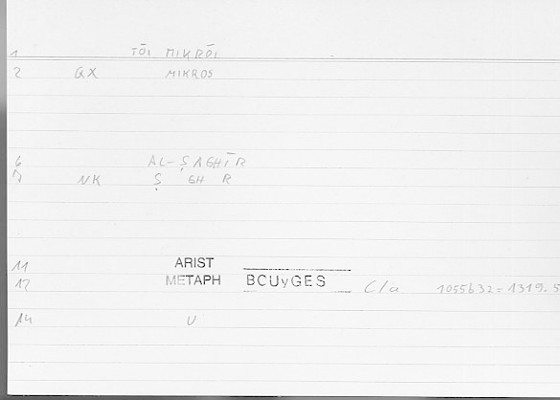 1 TŌI MIKRŌI
2 GX MIKROS
6 AL-ṢAGHĪR
7 NK Ṣ GH R
11 ARIST
12 METAPH BCUyGES C/a 1055b32=1319.5
14 U